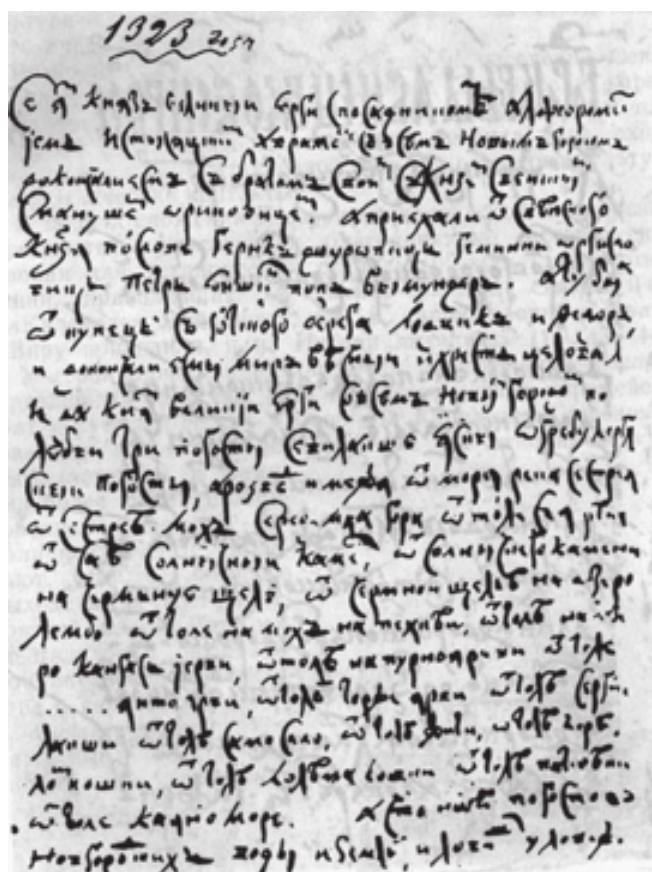 1323 года
Се я князь великіи Юрги с посадникомъ Алфоромеи
емъ и с тысяцким Аврам с всѣмъ Новымъ городомъ
докончали есмъ с братомъ свои с княз свеискы
с Манушем Ориковице. А приехали ѿ свѣиского
князя послове Герикъ дюуровицъ Геминки орисло
вицъ Петръ юншин попъ вымундеръ. А ту был
ѿ купецъ съ готского берега лодвикъ и Федоръ,
и докончали есмы миръ вѣчныи и хрстъ целовал
и да кня великіи Юрги съ всѣмъ Новы городо по
любви три погосты Севилакше яскы огребу корел
скыи погосты, а розвѣ и межа ѿ моря река сестрея
ѿ сестреѣ мохъ середе мха гора ѿтоле сая река
ѿ саѣ солнычныи каме, ѿ солнычнего камени
на чермьную щелѣ, ѿ чермнои щелѣ на озеро
лембо ѿтоле на мохъ на пехкѣи, ѿтолѣ на озе
ро кангасъ іерви, ѿтолѣ на пурноярви ѿтоле
..... янто ярви, ѿтолѣ торже ярви ѿтолѣ серги-
лакши ѿтолѣ само сало, ѿтолѣ жити, ѿтолѣ
кошки, ѿтолѣ ѿтолѣ
ѿтоле каяно море. А что нашѣ погостовъ
Новгородскихъ воды и землѣ, и ловищ у ловежѣ.